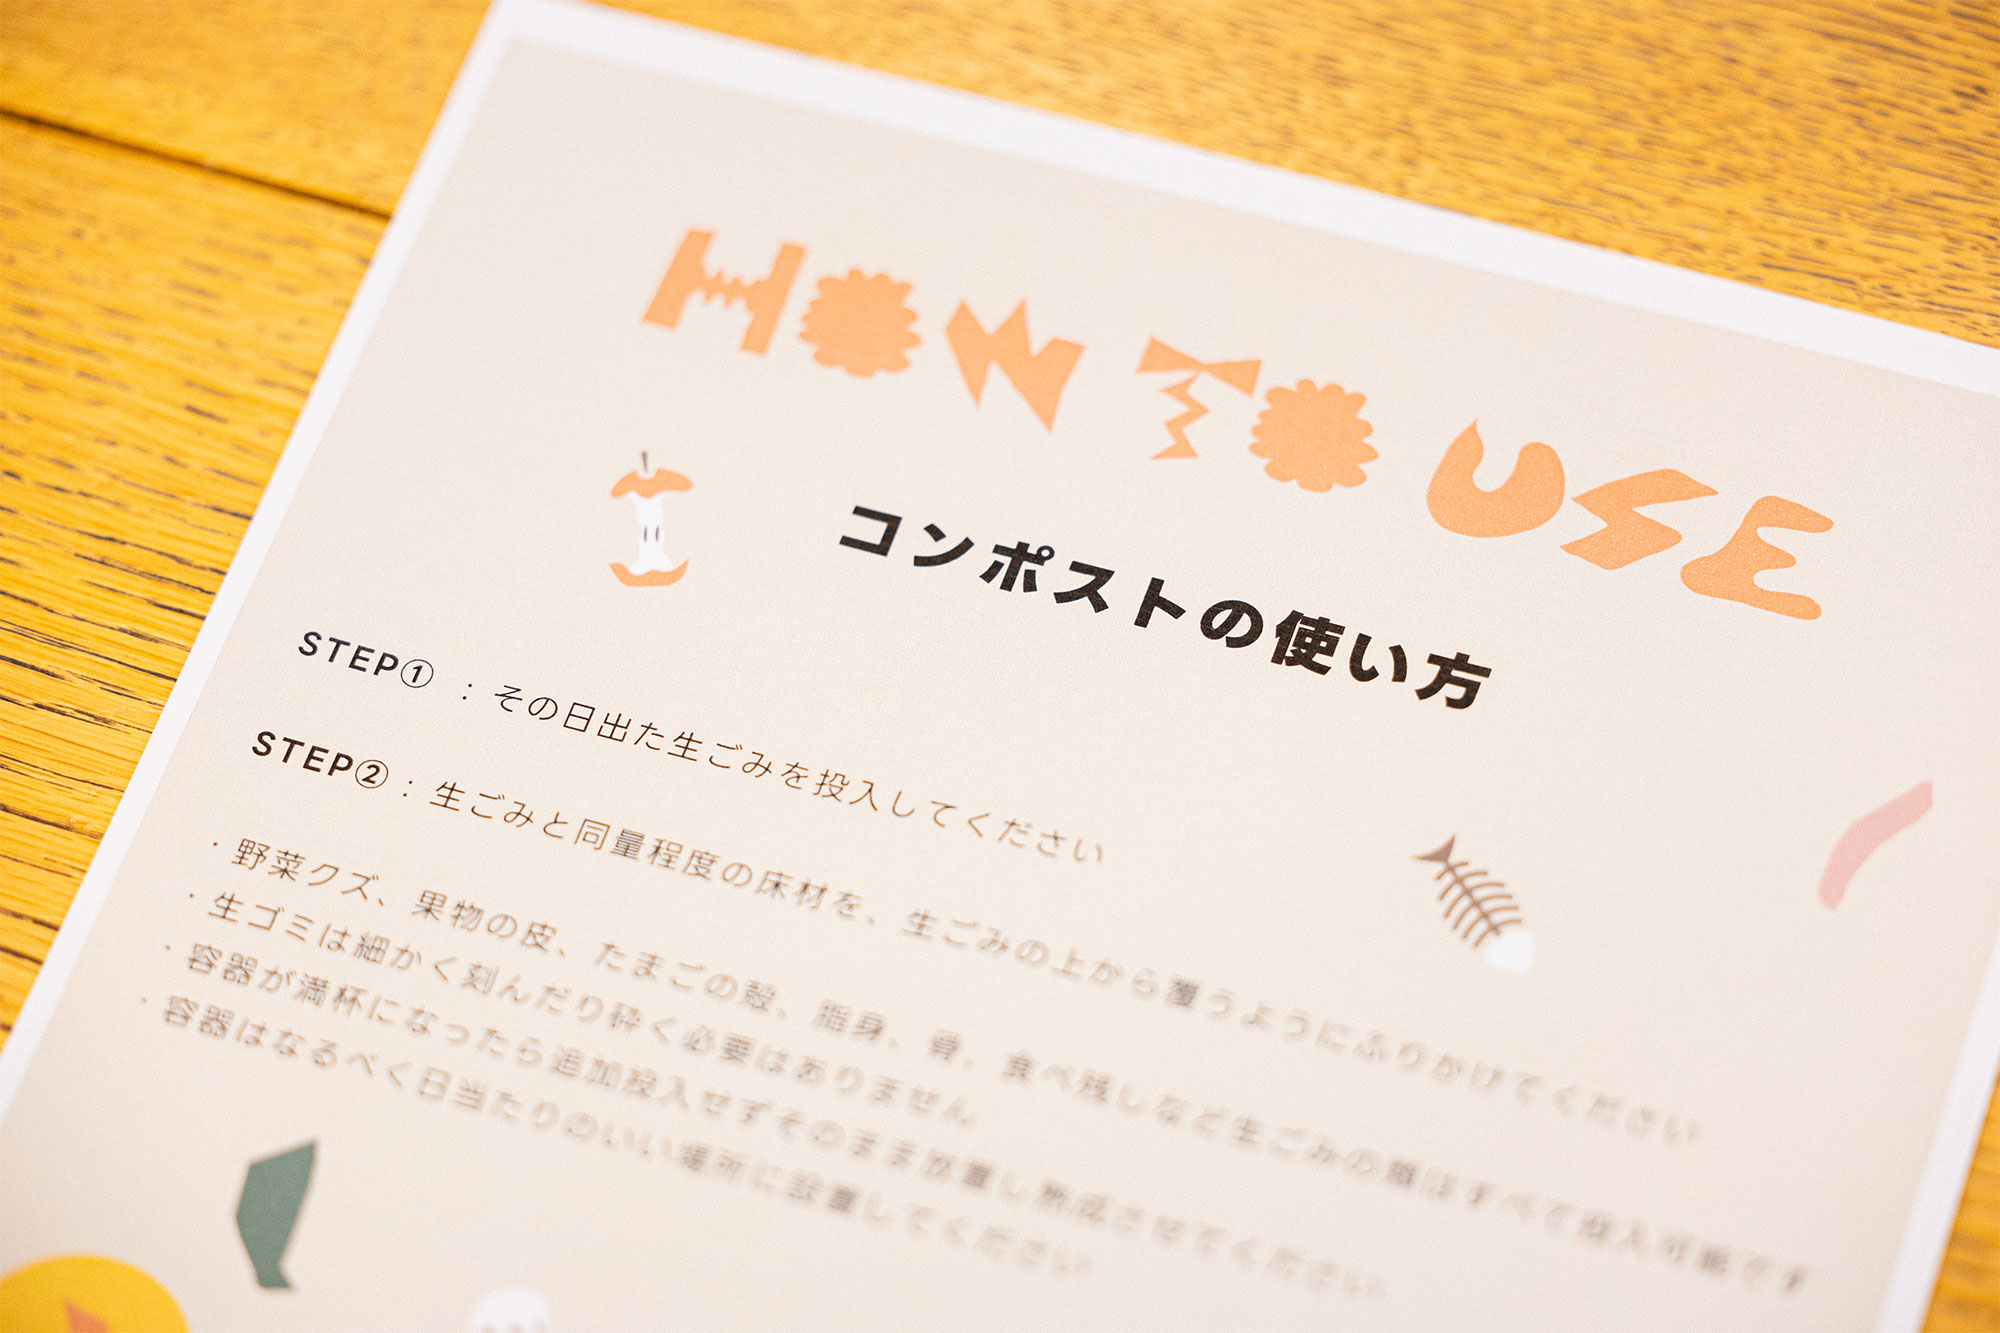 HOW TO USE
コンポストの使い方
STEP① : その日出た生ごみを投入してください
STEP② : 生ごみと同量程度の床材を、生ごみの上から覆うようにふりかけてください
・野菜クズ、果物の皮、たまごの殻、脂身、骨、食べ残しなど生ごみの類はすべて投入可能です
・生ゴミは細かく刻んだり砕く必要はありません
・容器が満杯になったら追加投入せずそのまま放置し熟成させてください
・容器はなるべく日当たりのいい場所に設置してください